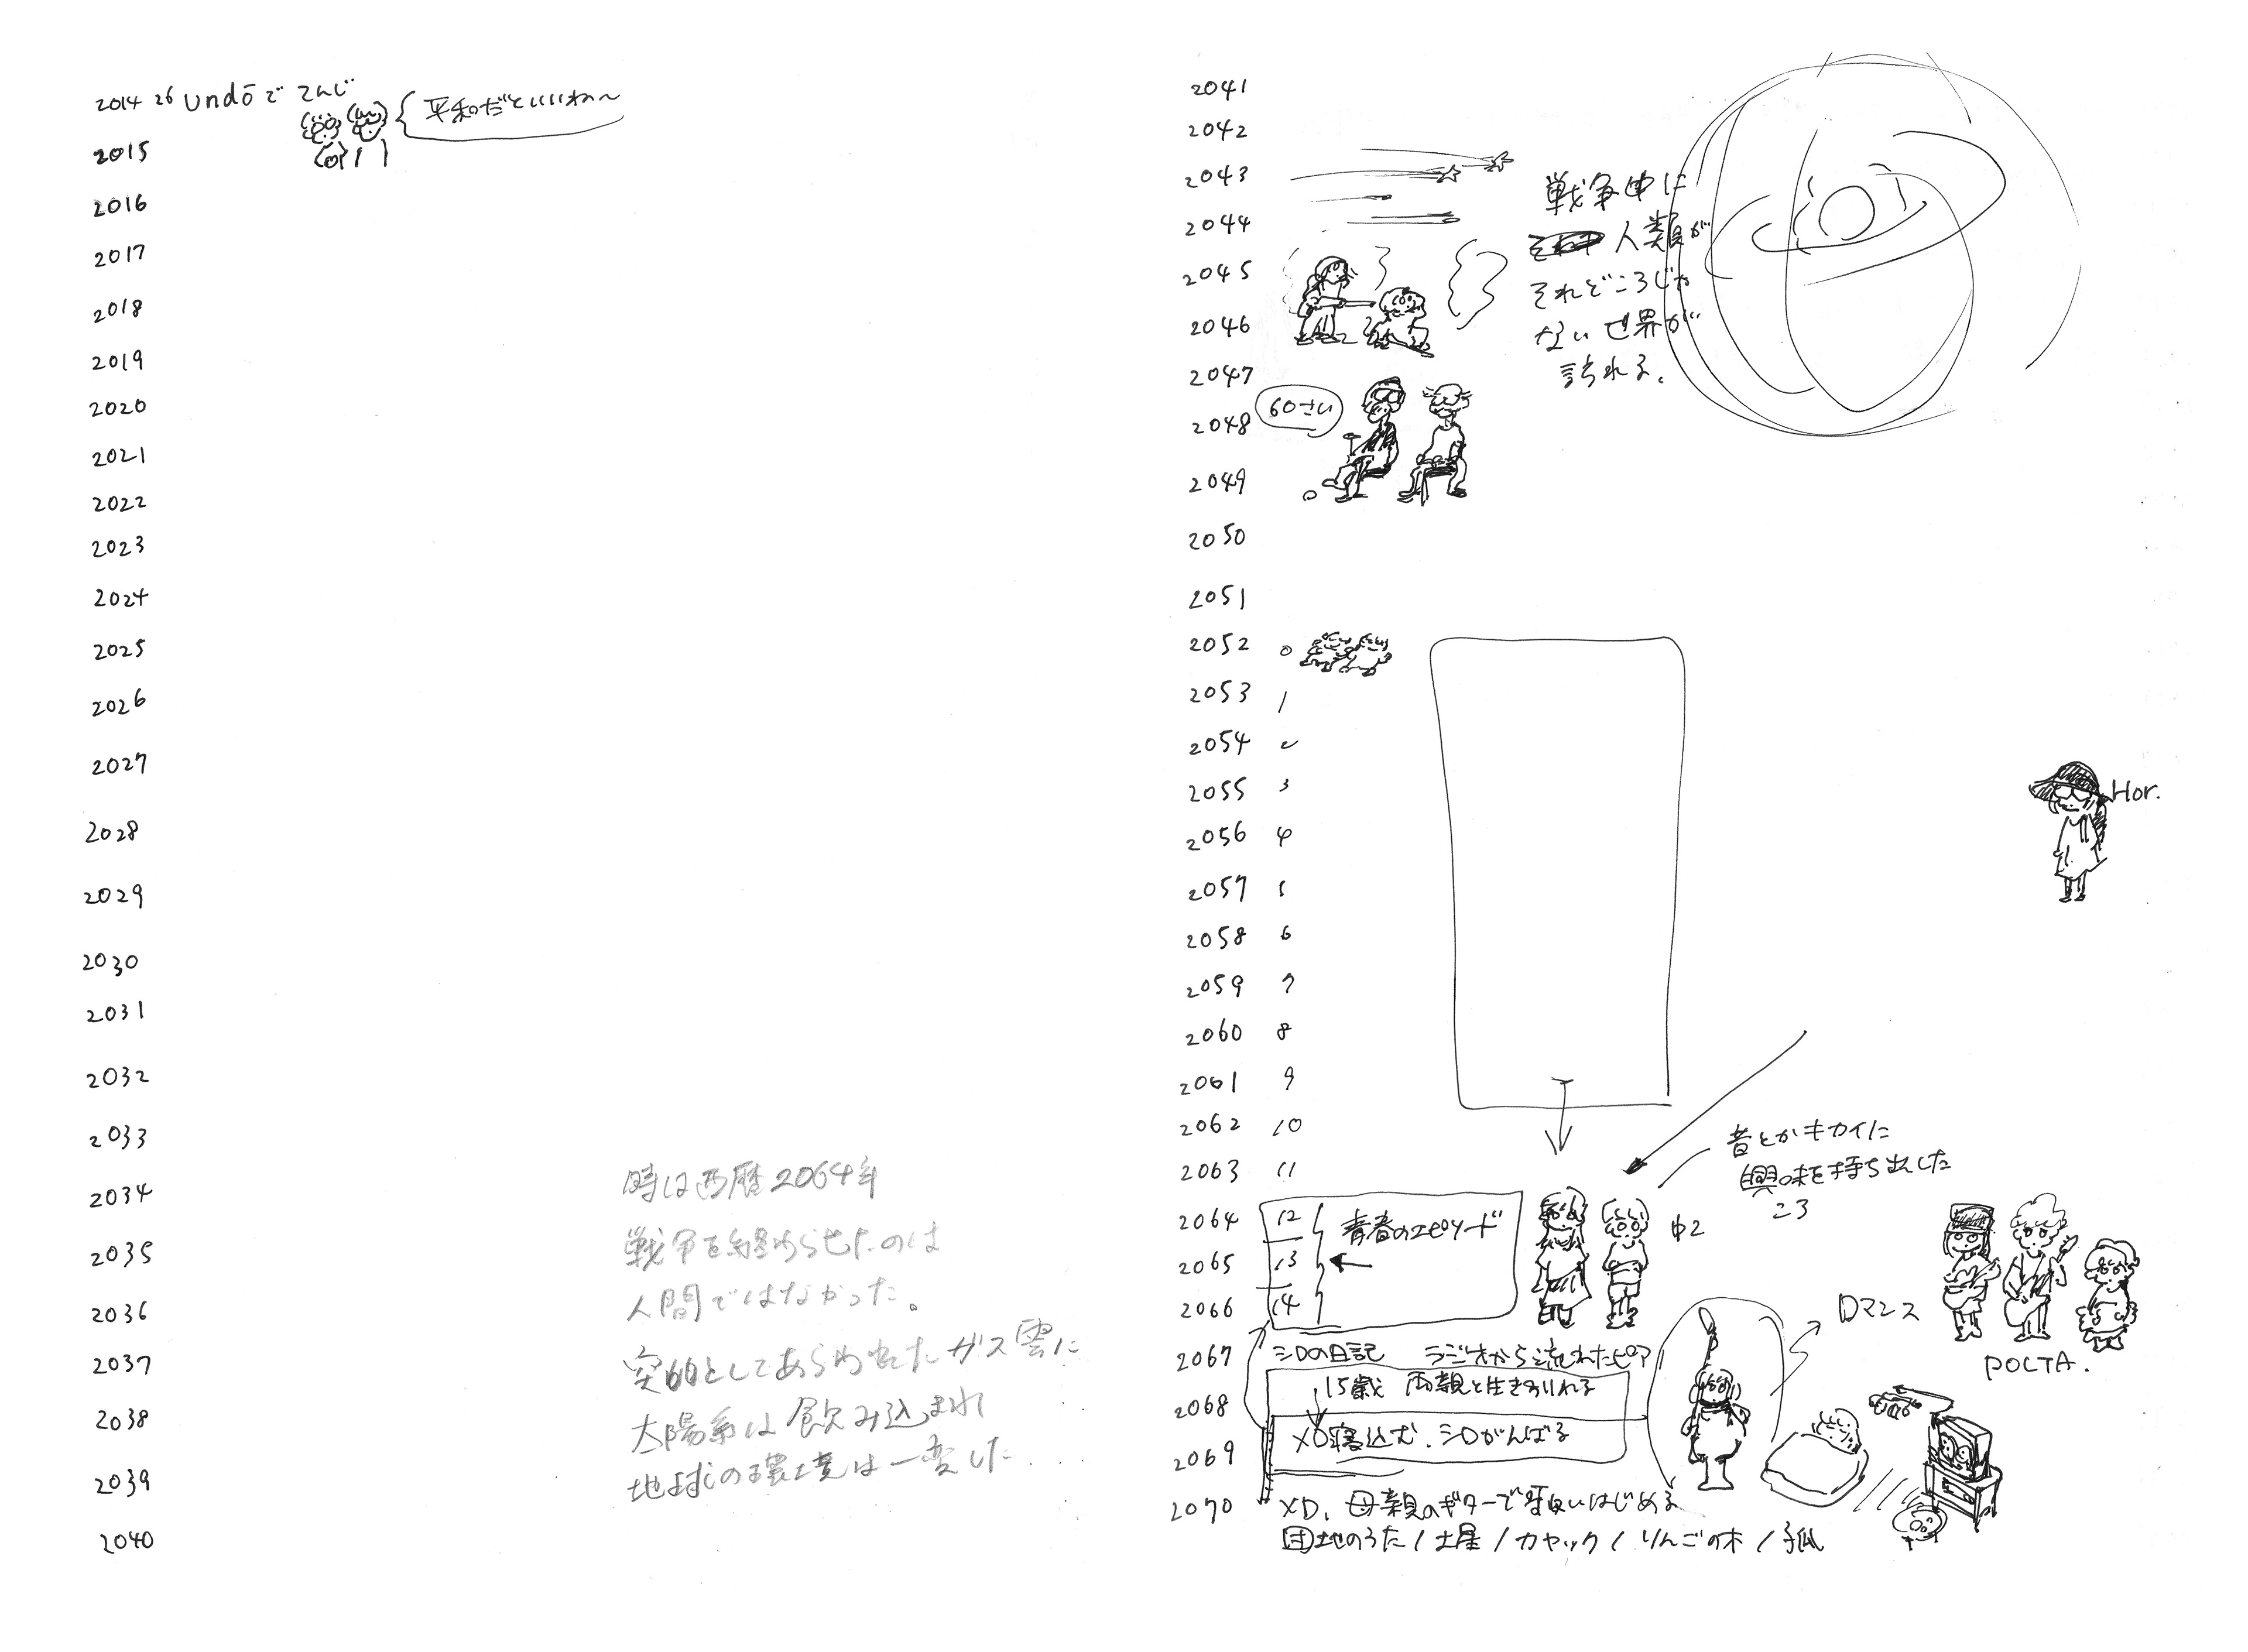 2014 26 undōで てんじ
平和だといいね〜
2015
2016
2017
2018
2019
2020
2021
2022
2023
2024
2025
2026
2027
2028
2029
2030
2031
2032
2033
2034
2035
2036
2037
2038
2039
2040
時は西暦2064年
戦争を終わらせたのは
人間ではなかった。
突如としてあらわれたガス雲に
太陽系は飲み込まれ
地球の環境は一変した
2041
2042
2043
2044
2045
2046
2047
2048
2049
2050
2051
戦争中に
人類が
それどころじゃ
ない世界が
訪れる。
60さい
2052 0
2053 1
2054 2
2055 3
2056 4
2057 5
2058 6
2059 7
2060 8
2061 9
2062 10
2063 11
2064 12
2065 13
2066 14
2067
2068
2069
2070
Hor.
音とかキカイに
興味を持ち出した
ころ
青春のエピソード
中2
シロの日記 ラジオから流れたピア
15歳 両親と生きわかれる
XD寝込む、シロがんばる
XD、母親のギターで歌いはじめる
団地のうた / 土星 / カヤック / りんごの木 / 狐
ロマンス
POLTA.